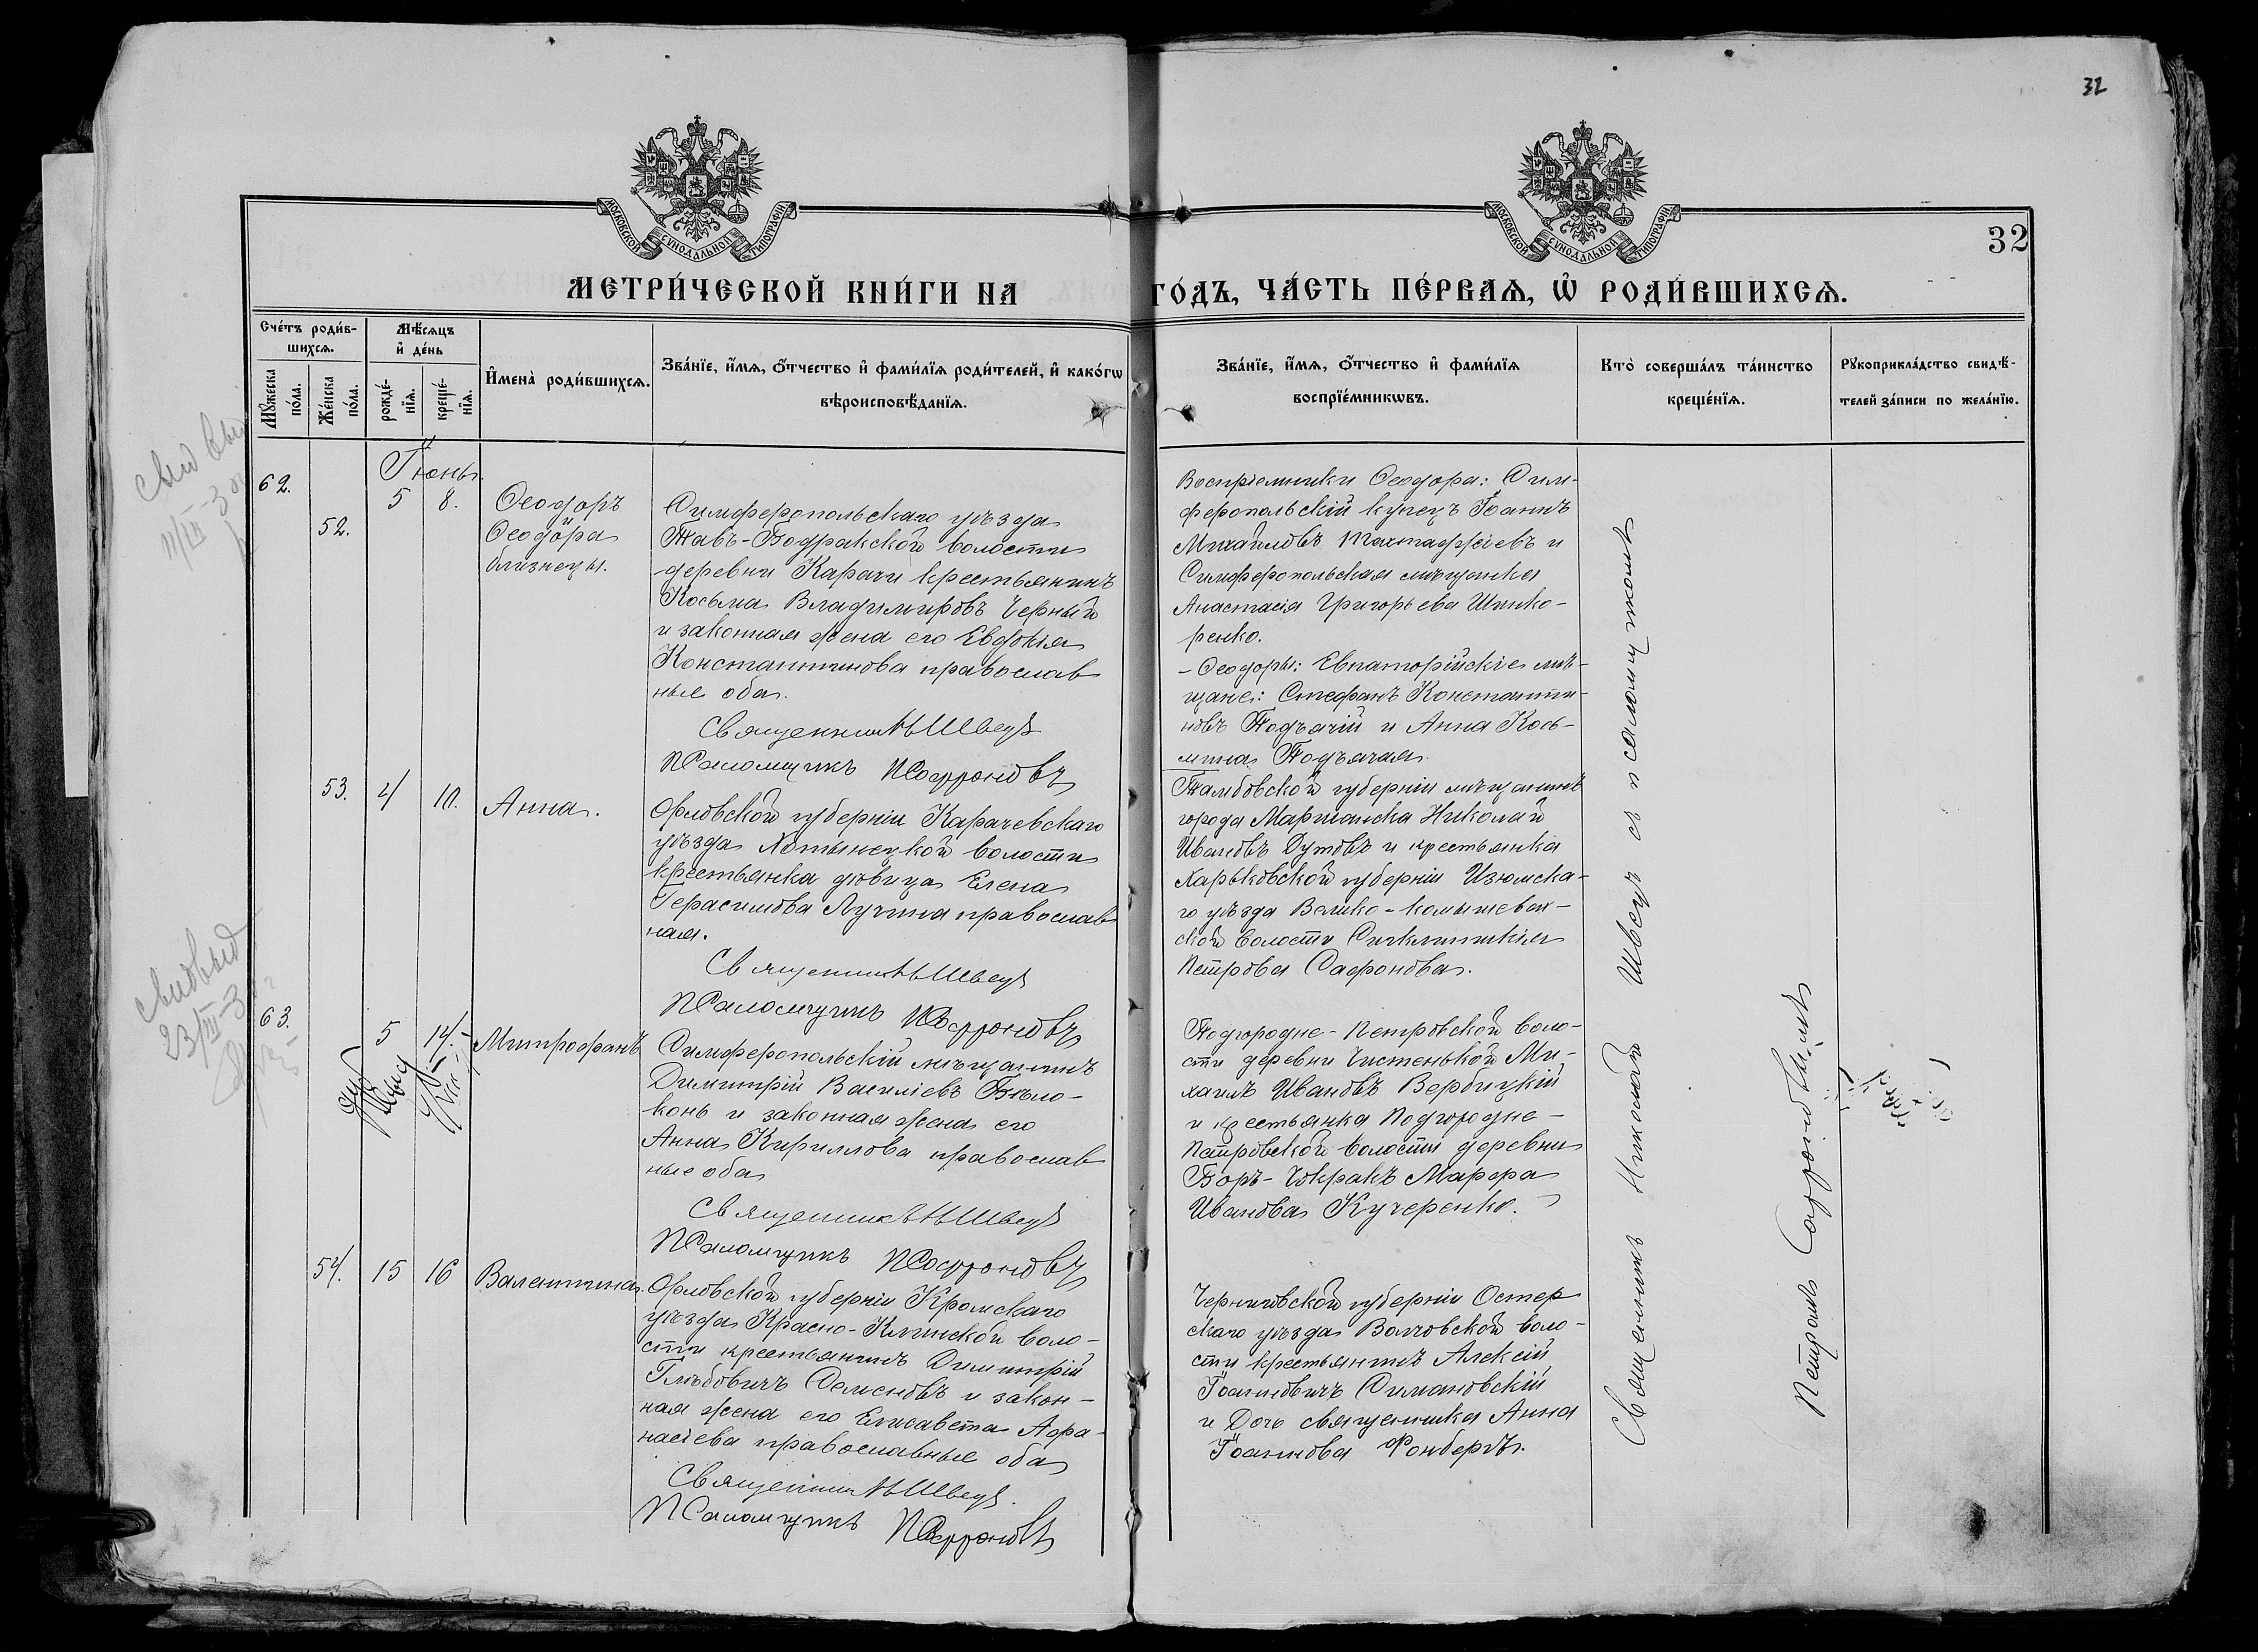 32
МОСКОВСКОЙ СУНОДАЛЬНОЙ ТИПОГРАФІИ.
МОСКОВСКОЙ СУНОДАЛЬНОЙ ТИПОГРАФІИ.
32
МЕТРИ́ЧЕСКОЙ КНИ́ГИ НА ГО́ДЪ, ЧА́СТЬ ПЕ́РВАѦ, Ѡ҆ РОДИ́ВШИХСѦ.
Сче́тъ роди́в-
шихсѧ.
Мꙋжеска
по́ла.
Же́нска
по́ла.
Мѣ́сѧцъ
и҆ де́нь
рожде́-
нїѧ.
креще́-
нїѧ.
И҆мена̀ роди́вшихсѧ.
Зва́нїе, и҆́мѧ, ѻ҆́тчество и҆ фами́лїѧ роди́телей, и҆ како́гѡ
вѣроисповѣ́данїѧ.
Зва́нїе, и҆́мѧ, ѻ҆́тчество и҆ фами́лїѧ
воспрїе́мникѡвъ.
Кто̀ соверша́лъ та́инство
креще́нїѧ.
Рꙋкоприкла́дство свидѣ́-
телей за́писи по жела́нїю.
Іюнь.
62.
52.
5
8.
Ѳеодоръ
и
Ѳеодора
близнецы.
Симферопольскаго уѣзда
Тавъ-Бодракской волости
деревни Карачи крестьянинъ
Косьма Владимировъ Черный
и законная жена его Евдокія
Константинова православ
ные оба.
Священникъ Н Швецъ
Псаломщикъ П Сафроновъ
Воспріемники Ѳеодора: Сим-
феропольскій купецъ Іоаннъ
Михайловъ Тахтаджіевъ и
Симферопольская мѣщанка
Анастасія Григорьева Шинко-
ренко.
- Ѳеодоры: Евпаторійскіе мѣ-
щане: Стефанъ Константи-
новъ Подъячій и Анна Кось-
мина Подъячая.
53.
4
10.
Анна.
Орловской губерніи Карачевскаго
уѣзда Хотынецкой волости
крестьянка дѣвица Елена
Герасимова Лучина православ
ная.
Священникъ Н Швецъ
Псаломщикъ П Сафроновъ
Тамбовской губерніи мѣщанинъ
города Маршанска Николай
Ивановъ Дутовъ и крестьянка
Харьковской губерніи Изюмска-
го уѣзда Велико-камышевах-
ской волости Сиклитикія
Петрова Сафронова.
63.
5
14.
Митрофанъ
Симферопольскій мѣщанинъ
Димитрій Василіевъ Бѣло-
конь и законная жена его
Анна Кириллова православ
ные оба
Священникъ Н Швецъ
Псаломщикъ П Сафроновъ
Подгородне-Петровской воло-
сти деревни Чистенькой Ми-
хаилъ Ивановъ Вербицкій
и крестьянка Подгородне-
Петровской волости деревни
Боръ-Чокракъ Марфа
Иванова Кучеренко.
54.
15
16
Валентина.
Орловской губерніи Кромскаго
уѣзда Красно-Клинской воло-
сти крестьянинъ Димитрій
Глѣбовичъ Семеновъ и закон-
ная жена его Елисавета Афа-
насіева православные оба
Священникъ Н Швецъ.
Псаломщикъ П Сафроновъ
Черниговской губерніи Остер
скаго уѣзда Волчовской воло-
сти крестьянинъ Алексій
Іоанновичъ Симановскій
и Дочь священника Анна
Іоаннова Фонбергъ.
Священникъ Николай Швецъ съ псаломщикомъ
Петромъ Сафроновымъ